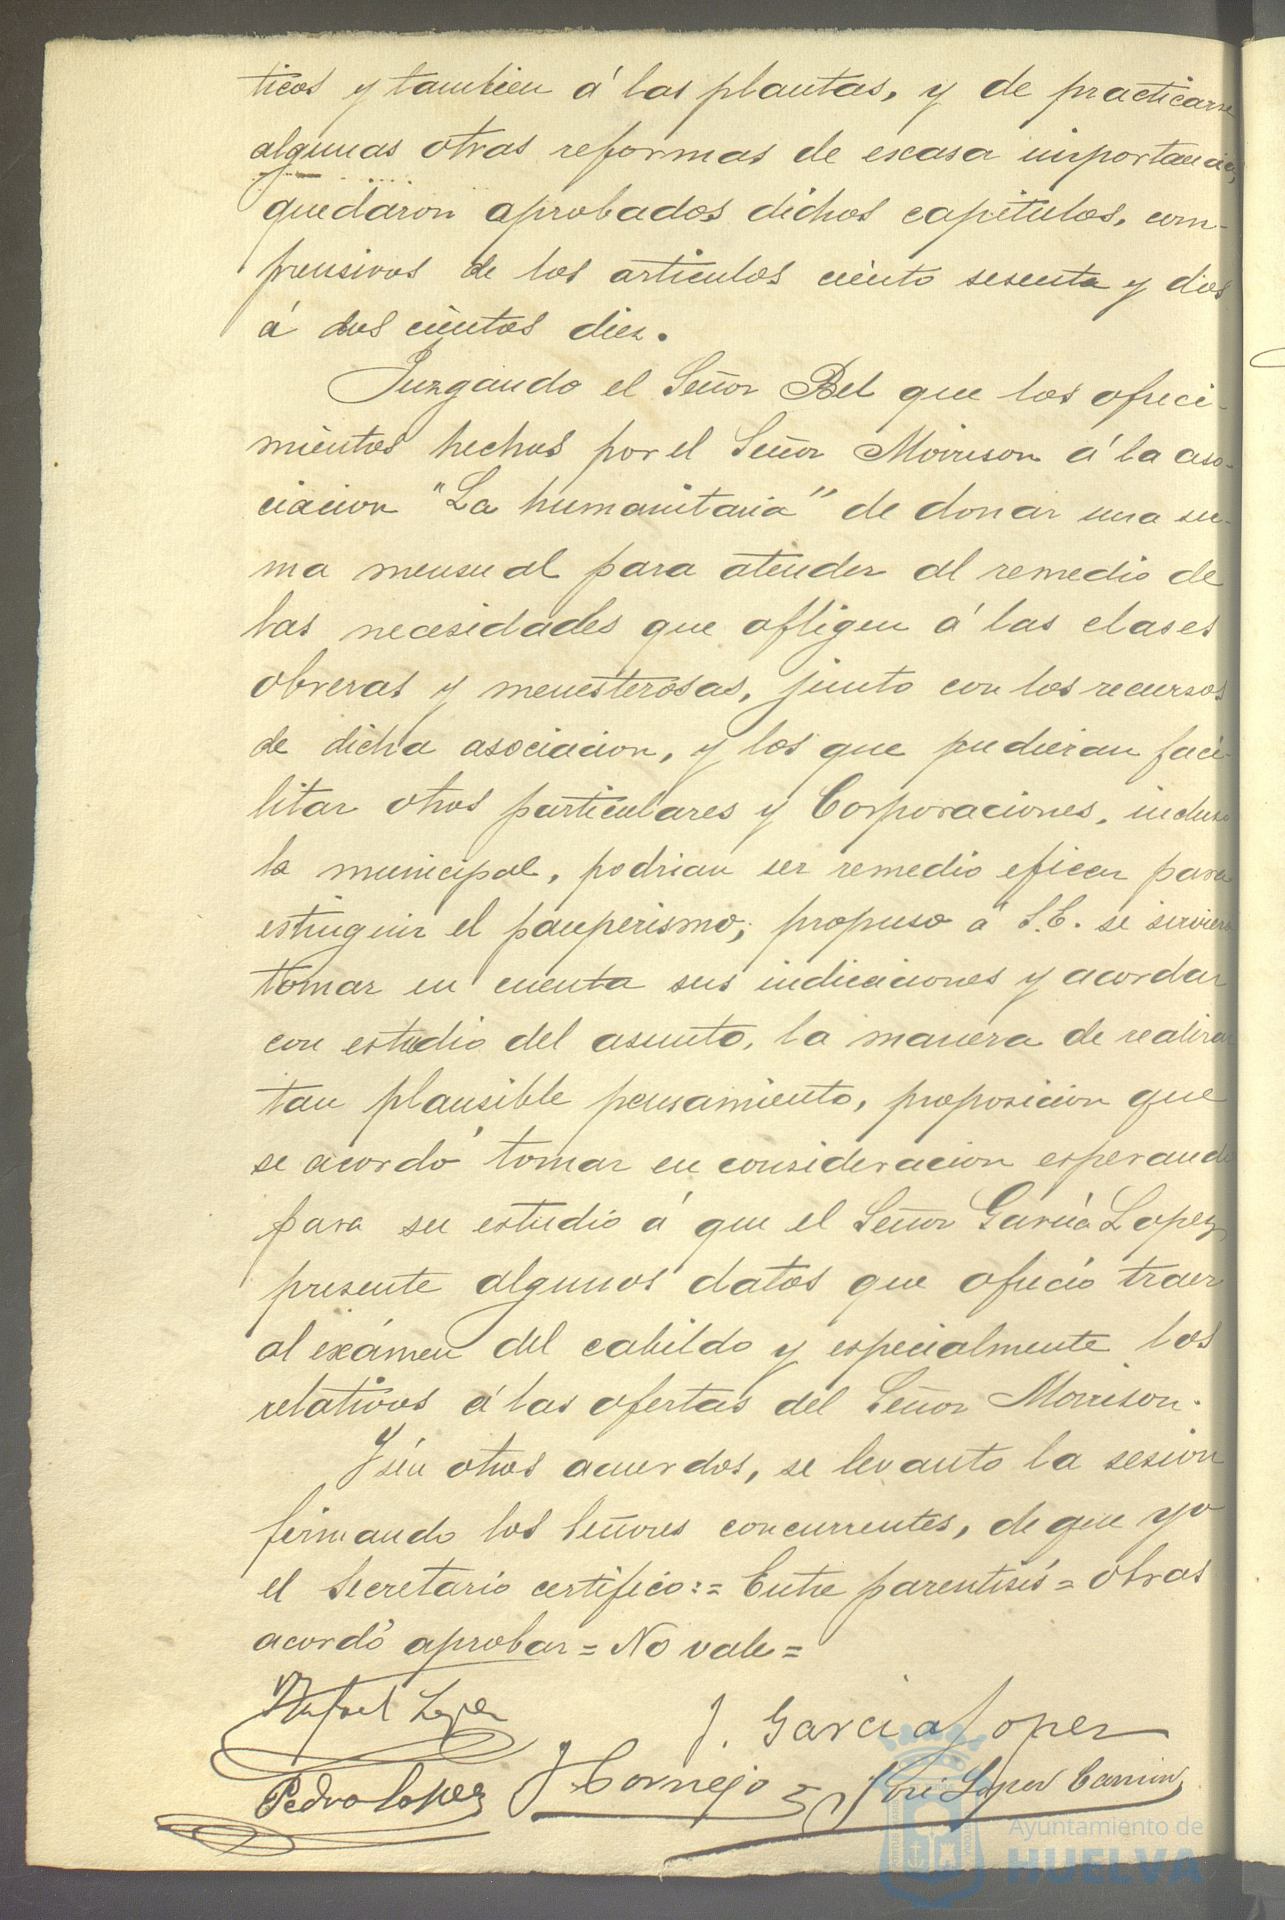 ticos y tambien á las plantas, y de practicarse
algunas otras reformas de escasa importancia,
quedaron aprobados dichos capitulos, com-
prensivos de los articulos ciento sesenta y dos
á dos cientos diez.
Juzgando el Señor Bel que los ofreci-
mientos hechos por el Señor Morrison á la aso-
ciacion "La humanitaria" de donar una su-
ma mensual para atender al remedio de
las necesidades que afligen á las clases
obreras y menesterosas, junto con los recursos
de dicha asociacion, y los que pudieran faci-
litar otros particulares y Corporaciones, incluso
la municipal, podrian ser remedio eficaz para
estinguir el pauperismo; propuso á S.E. se sirviera
tomar en cuenta sus indicaciones y acordar
con estudio del asunto, la manera de realizar
tan plausible pensamiento, proposicion que
se acordó tomar en consideracion esperando
para su estudio á que el Señor García Lopez
presente algunos datos que ofreció traer
al exámen del cabildo y especialmente los
relativos á las ofertas del Señor Morrison.
Y sin otros acuerdos, se levanto la sesion
firmando los Señores concurrentes, de que yo
el Secretario certifico:= Entre parentisis = otras
acordó aprobar = No vale =
Rafael Lopez
J. Garcia Lopez
Pedro Lopez J Cornejo José Lopez
Ayuntamiento de
HUELVA